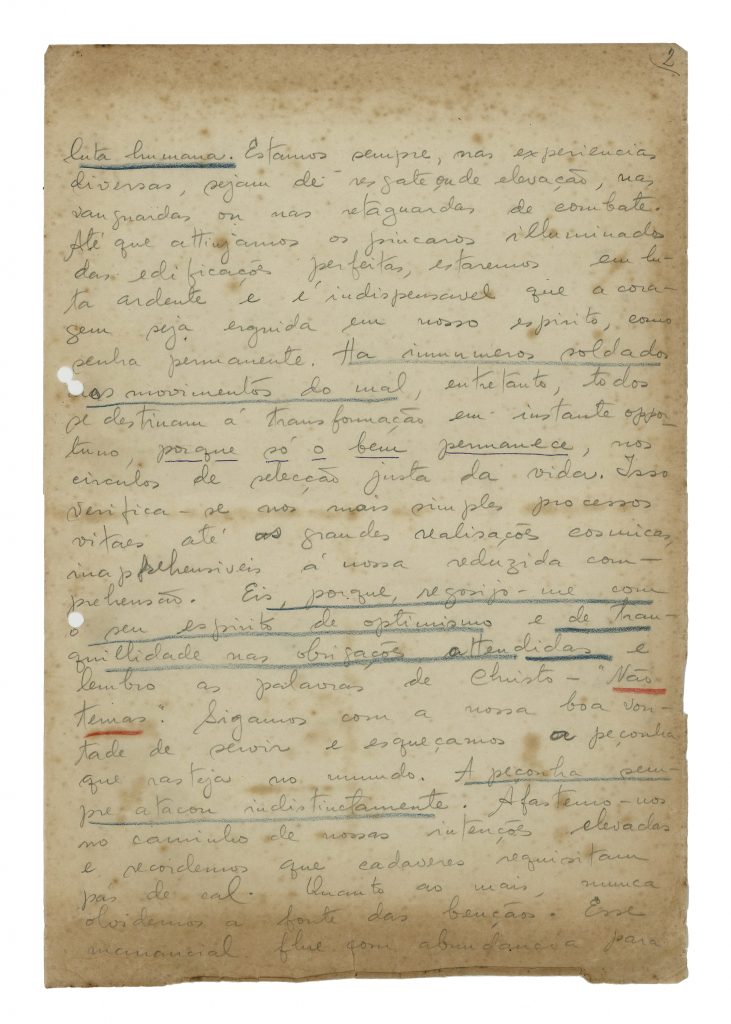 2
luta humana. Estamos sempre, nas experiencias
diversas, sejam de resgate ou de elevação, nas
vanguardas ou nas retaguardas de combate.
Até que attinjamos os pincaros illuminados
das edificações perfeitas, estaremos em lu-
ta ardente e é indispensavel que a cora-
gem seja erguida em nosso espirito, como
senha permanente. Ha innumeros soldados
nos movimentos do mal, entretanto, todos
se destinam á transformação em instante oppor-
tuno, porque só o bem permanece, nos
circulos de selecção justa da vida. Isso
verifica-se nos mais simples processos
vitaes até as grandes realisações cosmicas,
inapprehensiveis á nossa reduzida com-
prehensão. Eis, porque, regosijo-me com
o seu espirito de optimismo e de tran-
quillidade nas obrigações attendidas e
lembro as palavras de Christo - "Não
temas". Sigamos com a nossa boa von-
tade de servir e esqueçamos a peçonha
que rasteja no mundo. A peçonha sem-
pre atacou indistinctamente. Afastemo-nos
no caminho de nossas intenções elevadas
e recordemos que cadaveres requisitam
pás de cal. Quanto ao mais, nunca
olvidemos a fonte das bençãos. Esse
manancial flue com abundancia para